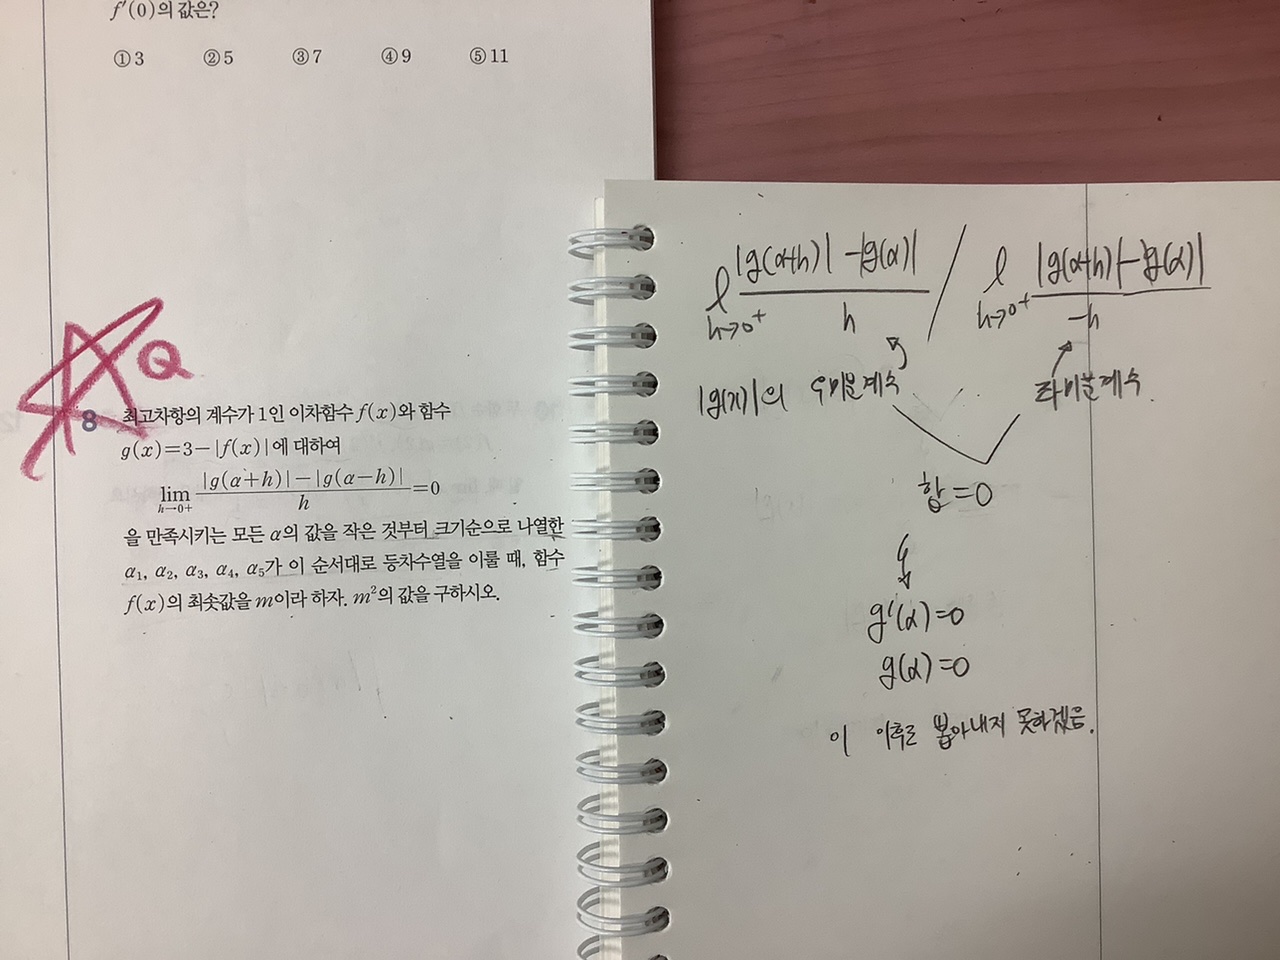 f'(0)의 값은?
① 3 ② 5 ③ 7 ④ 9 ⑤ 11
Q
8 최고차항의 계수가 1인 이차함수 f(x)와 함수
g(x)=3-|f(x)|에 대하여
lim h→0+ (|g(α+h)|-|g(α-h)|)/h =0
을 만족시키는 모든 α의 값을 작은 것부터 크기순으로 나열한
α₁, α₂, α₃, α₄, α₅가 이 순서대로 등차수열을 이룰 때, 함수
f(x)의 최솟값을 m이라 하자. m²의 값을 구하시오.
l h→0+ (|g(α+h)|-|g(α)|)/h / l h→0+ (|g(α+h)|-|g(α)|)/-h
|g(x)|의 우미분계수 좌미분계수.
합=0
g'(α)=0
g(α)=0
이 이후로 뽑아내지 못하겠음.